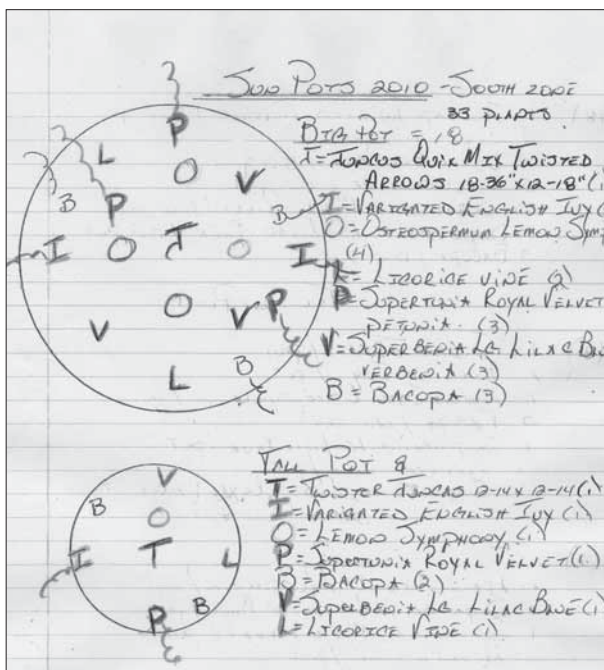 SUN POTS 2010 - SOUTH ZONE
33 PLANTS
BIG POT = 18
T = JUNCUS QUIK MIX TWISTED
ARROWS 18-36" X 12-18" (1
I = VARIGATED ENGLISH IVY (
O = OSTEOSPERMUM LEMON SYM
(4)
L = LICORICE VINE (2)
P = SUPERTUNIA ROYAL VELVET
PETUNIA (3)
V = SUPERBENIA LG LILAC BLU
VERBENIA (3)
B = BACOPA (3)
P
L
O
V
B
P
B
I
O
T
O
I
O
V
V
P
B
L
TALL POT 8
T = TWISTER JUNCAS 12-14 X 12-14 (1)
I = VARIGATED ENGLISH IVY (1)
O = LEMON SYMPHONY (1)
P = SUPERTUNIA ROYAL VELVET (1)
B = BACOPA (2)
V = SUPERBENIA LG. LILAC BLUE (1)
L = LICORICE VINE (1)
V
B
O
I
T
L
P
B